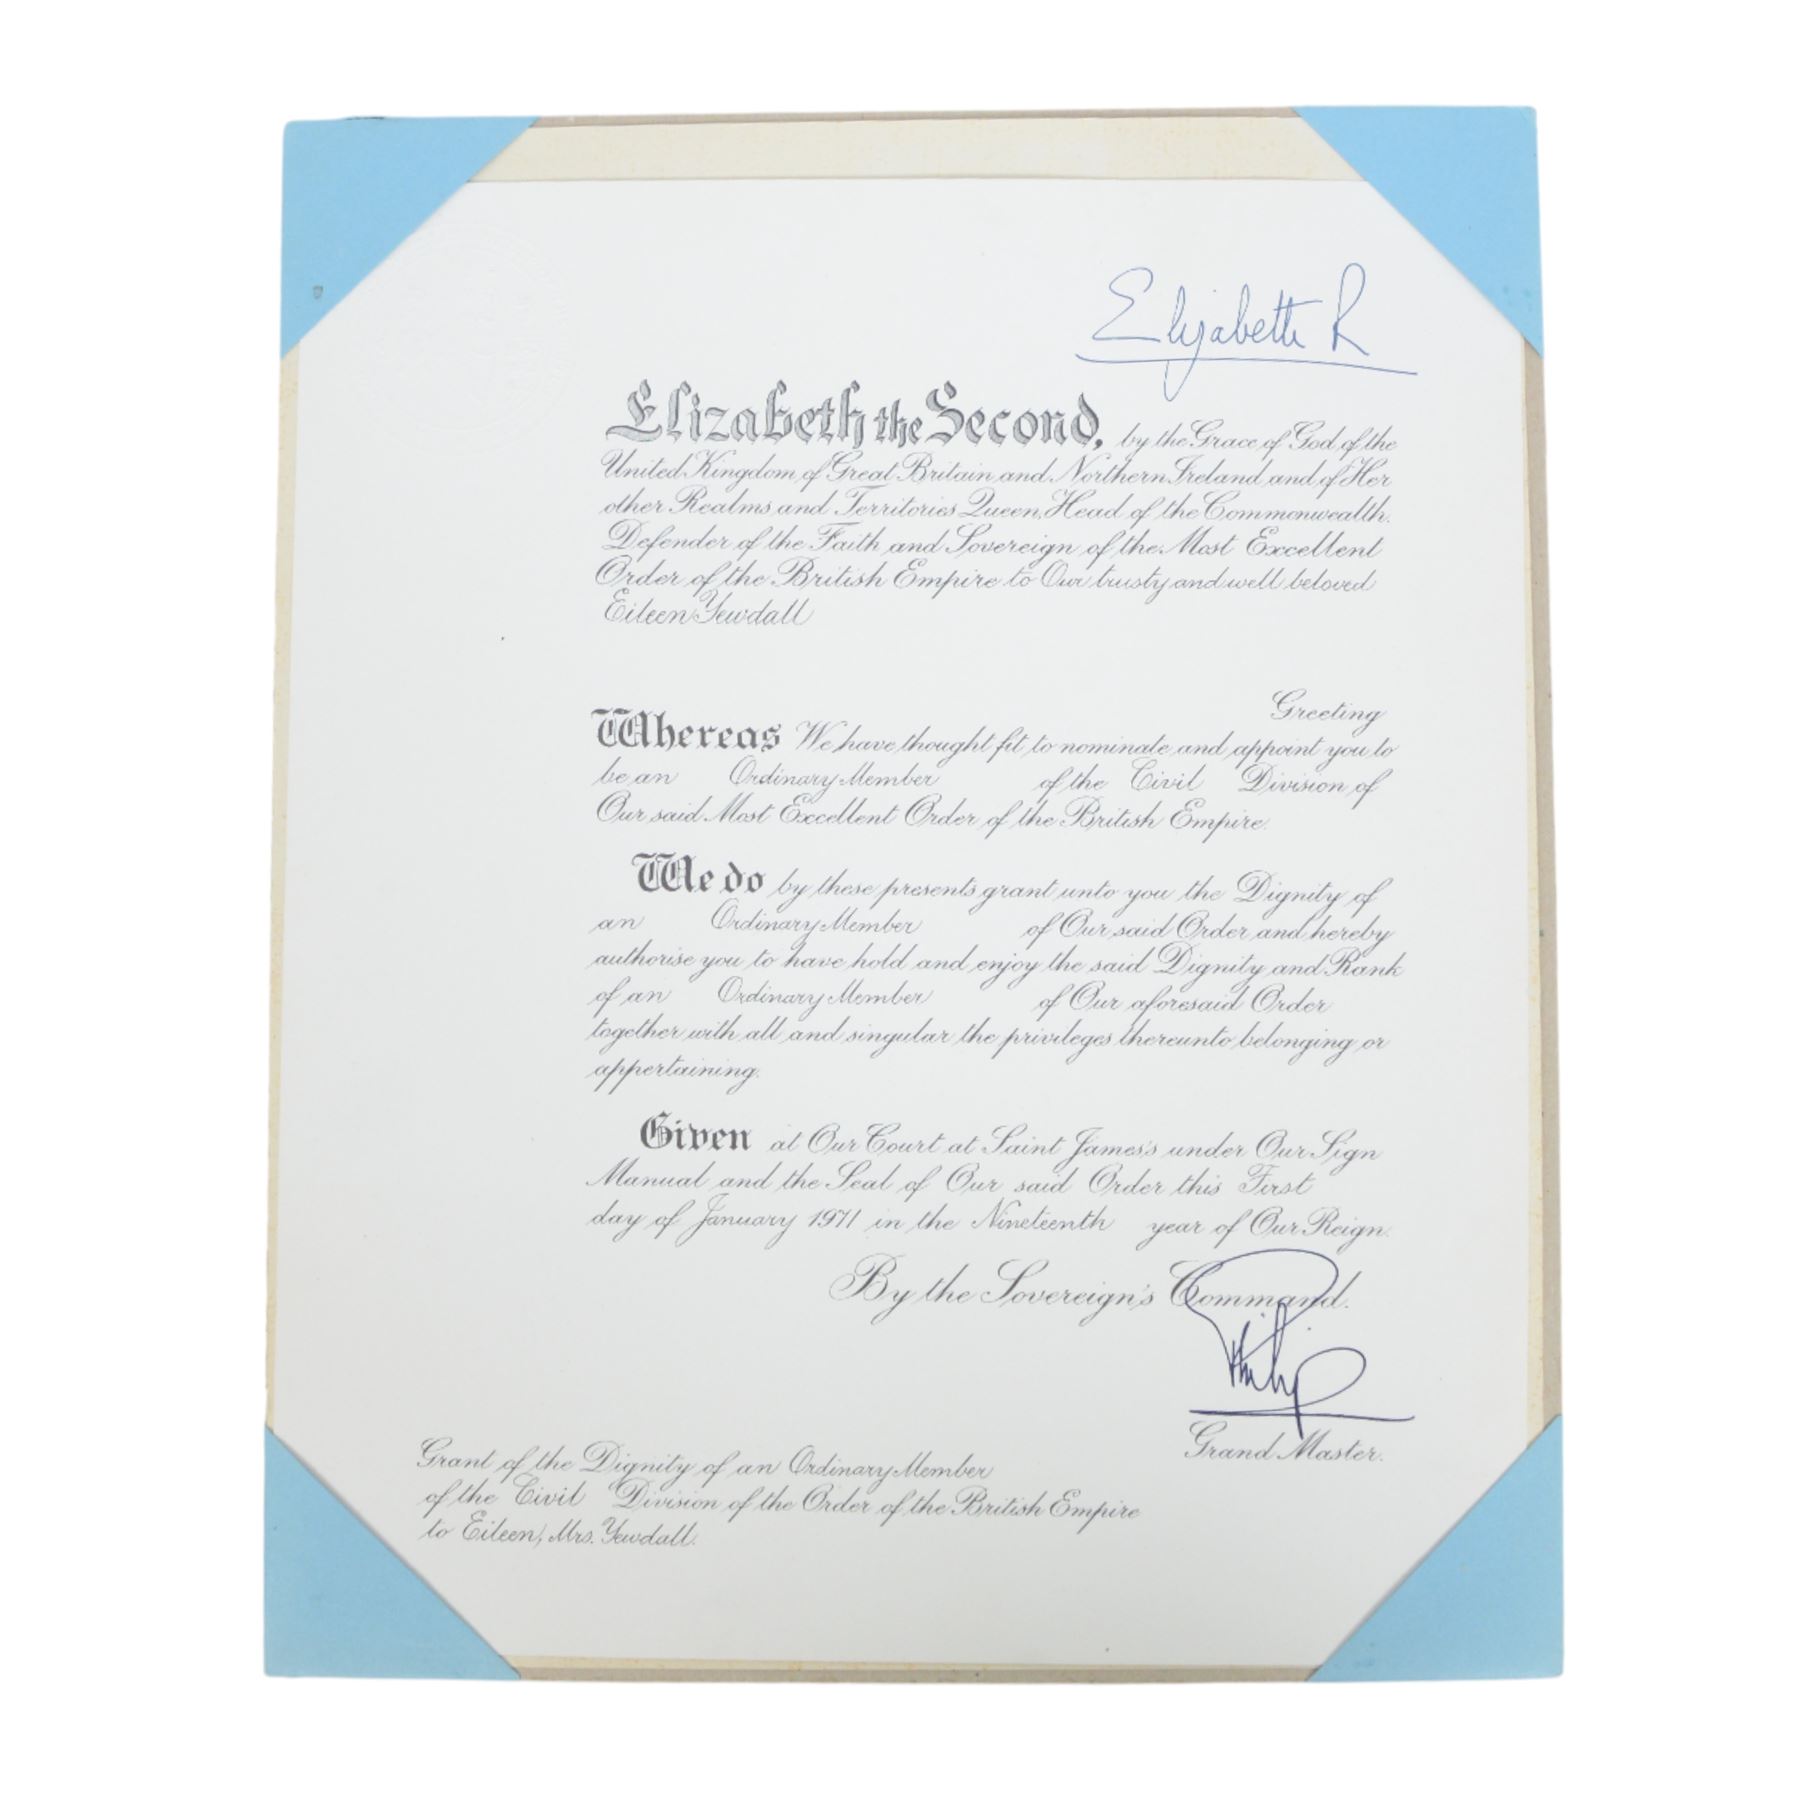 Elizabeth R
Elizabeth the Second, by the Grace of God of the
United Kingdom of Great Britain and Northern Ireland and of Her
other Realms and Territories Queen, Head of the Commonwealth.
Defender of the Faith and Sovereign of the Most Excellent
Order of the British Empire to Our trusty and well beloved
Eileen Yewdall
Greeting
Whereas We have thought fit to nominate and appoint you to
be an Ordinary Member of the Civil Division of
Our said Most Excellent Order of the British Empire.
We do by these presents grant unto you the Dignity of
an Ordinary Member of Our said Order and hereby
authorise you to have hold and enjoy the said Dignity and Rank
of an Ordinary Member of Our aforesaid Order
together with all and singular the privileges thereunto belonging or
appertaining.
Given at Our Court at Saint James's under Our Sign
Manual and the Seal of Our said Order this First
day of January 1971 in the Nineteenth year of Our Reign.
By the Sovereign's Command.
Philip
Grand Master.
Grant of the Dignity of an Ordinary Member
of the Civil Division of the Order of the British Empire
to Eileen, Mrs. Yewdall.